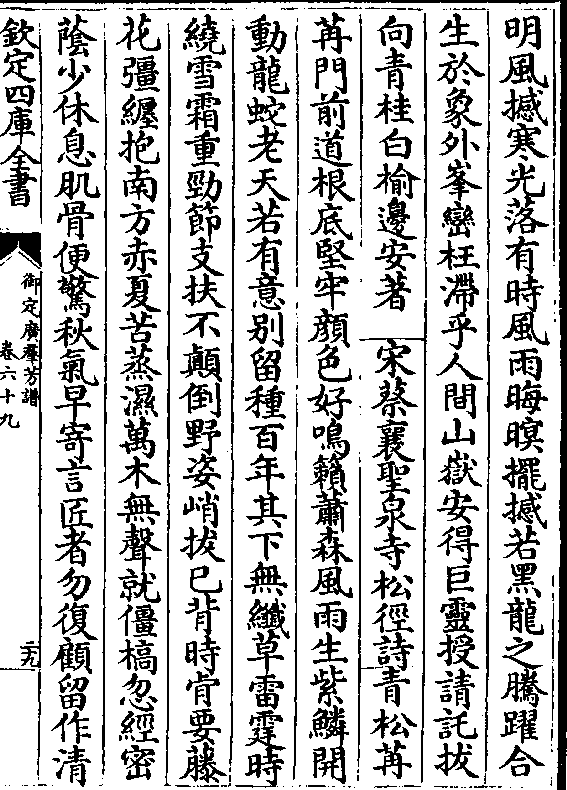 明風撼寒光落有時風雨晦暝擺撼若黑龍之騰躍合
生於象外峯巒枉滯乎人間山嶽安得巨靈授請託拔
向青桂白榆邊安著　宋蔡襄聖泉寺松徑詩青松苒
苒門前道根底堅牢顔色好鳴籟蕭森風雨生紫鱗開
動龍蛇老天若有意别留種百年其下無纖草雷霆時
繞雪霜重勁節支扶不顛倒野姿峭拔已背時肯要藤
花彊纒抱南方赤夏苦蒸濕萬木無聲就僵槁忽經密
蔭少休息肌骨便驚秋氣早寄言匠者勿復顧留作清
欽定四庫全書
御定廣羣芳譜
卷六十九
二九